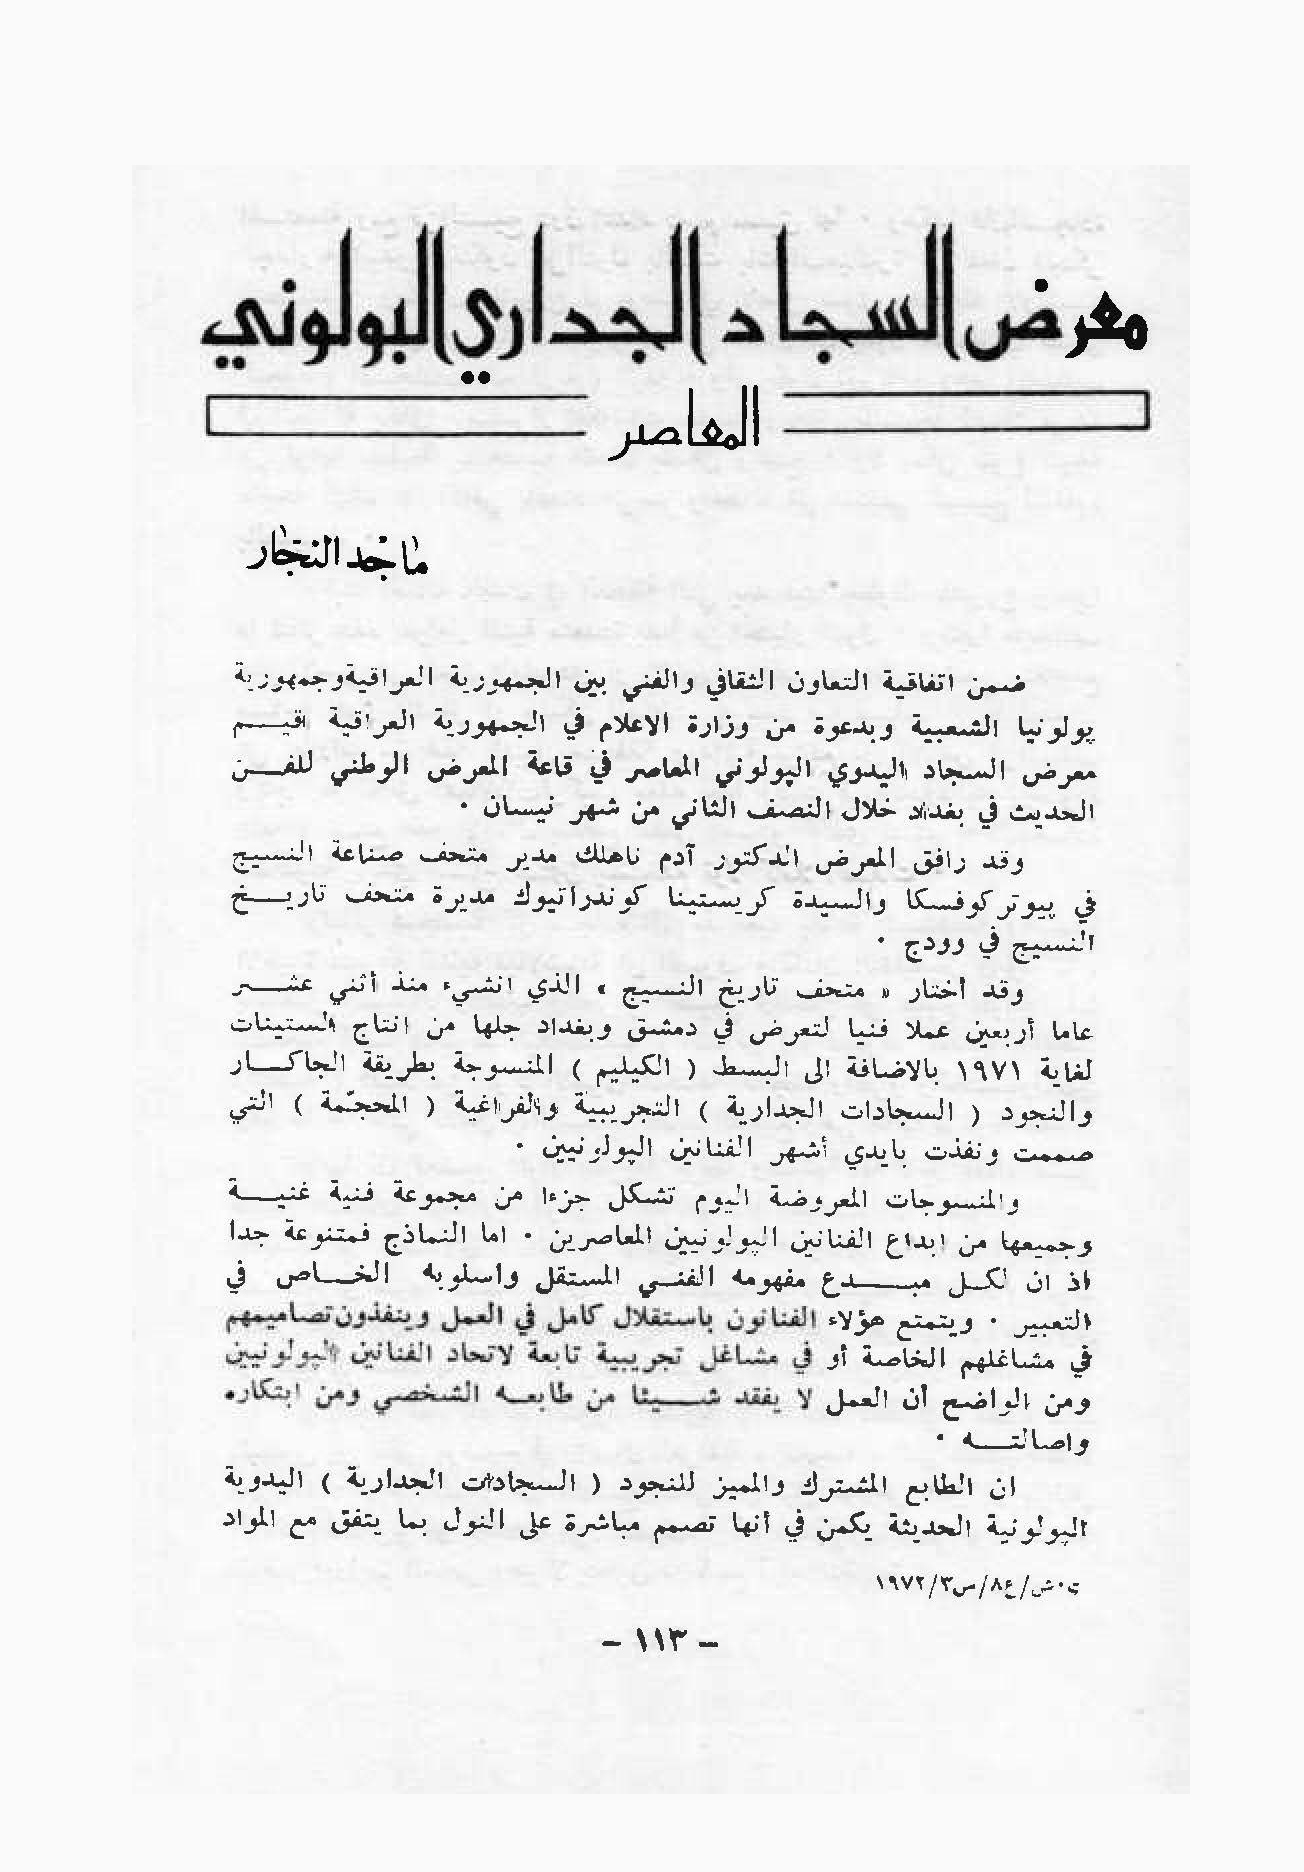 معرض السجاد الجداري البولوني
المعاصر
ماجد النجار
ضمن اتفاقية التعاون الثقافي والفني بين الجمهورية العراقية وجمهورية
پولونيا الشعبية وبدعوة من وزارة الاعلام في الجمهورية العراقية اقيـــم
معرض السجاد اليدوي الپولوني المعاصر في قاعة المعرض الوطني للفـــن
الحديث في بغداد خلال النصف الثاني من شهر نيسان ٠
وقد رافق المعرض الدكتور آدم ناهلك مدير متحف صناعة النسيج
في پيوتركوفسكا والسيدة كريستينا كوندراتيوك مديرة متحف تاريـــخ
النسيج في وودج ٠
وقد أختار « متحف تاريخ النسيج » الذي انشيء منذ أثني عشـــر
عاما أربعين عملا فنيا لتعرض في دمشق وبغداد جلها من انتاج الستينات
لغاية ١٩٧١ بالاضافة الى البسط ( الكيليم ) المنسوجة بطريقة الجاكـــار
والنجود ( السجادات الجدارية ) التجريبية والفراغية ( المحجّمة ) التي
صممت ونفذت بايدي أشهر الفنانين الپولونيين ٠
والمنسوجات المعروضة اليوم تشكل جزءا من مجموعة فنية غنيـــة
وجميعها من ابداع الفنانين الپولونيين المعاصرين ٠ اما النماذج فمتنوعة جدا
اذ ان لكـــل مبـــدع مفهومه الفنـــي المستقل واسلوبه الخـــاص في
التعبير ٠ ويتمتع هؤلاء الفنانون باستقلال كامل في العمل وينفذون تصاميمهم
في مشاغلهم الخاصة أو في مشاغل تجريبية تابعة لاتحاد الفنانين الپولونيين
ومن الواضح أن العمل لا يفقد شـــيئا من طابعـــه الشخصي ومن ابتكاره
واصالتـــه ٠
ان الطابع المشترك والمميز للنجود ( السجادات الجدارية ) اليدوية
الپولونية الحديثة يكمن في أنها تصمم مباشرة على النول بما يتفق مع المواد
ت٠ش/ع٨/س٣/١٩٧٢
– ١١٣ –